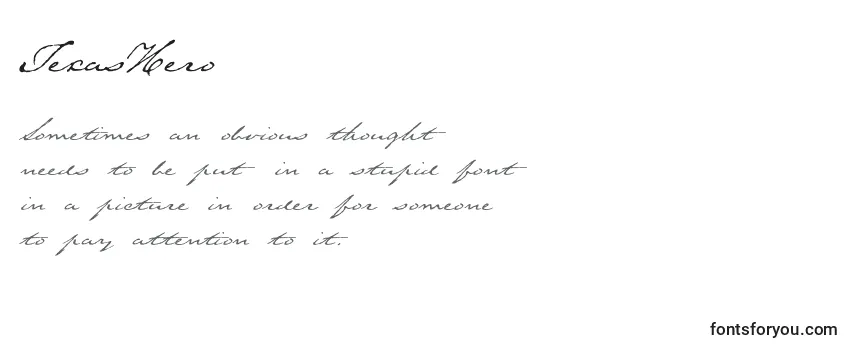 TexasHero
Sometimes an obvious thought
needs to be put in a stupid font
in a picture in order for someone
to pay attention to it.
fontsforyou.com